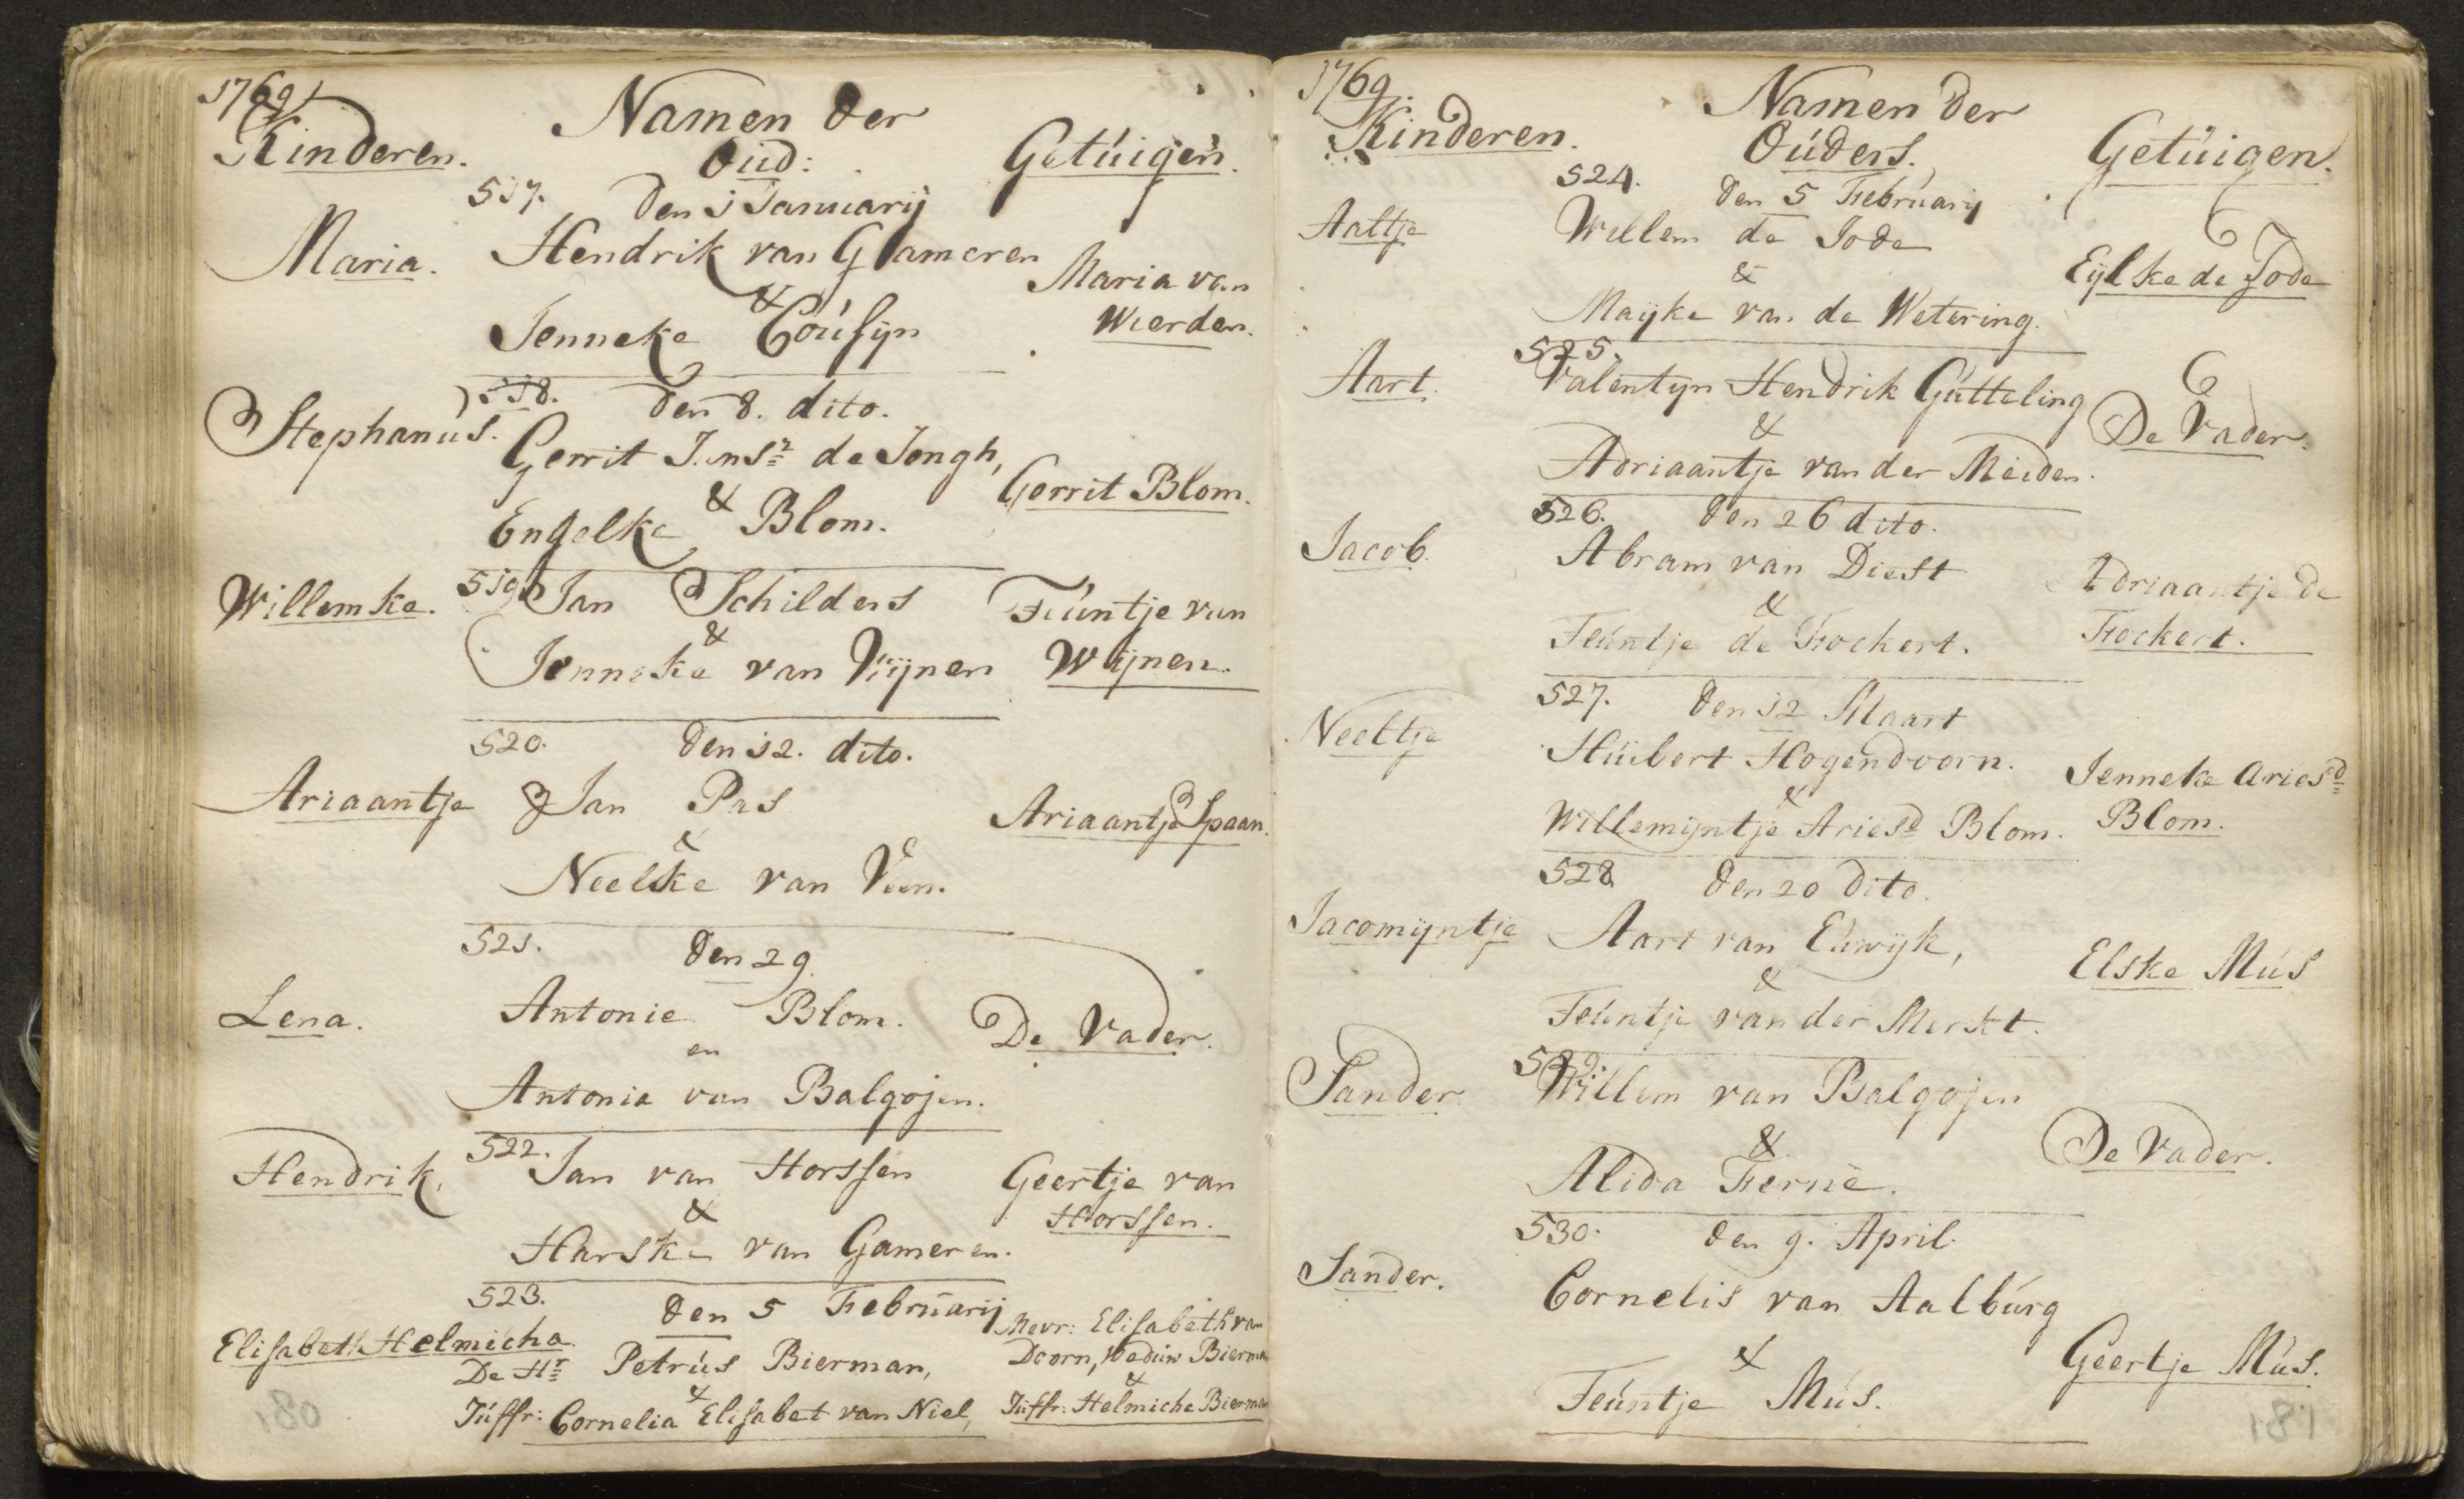 1769
Namen der
Kinderen. Oud: Getúigen.
517. den 1 Januarij
Maria. Hendrik van Gameren Maria van
&
Jenneke Coúsijn Wierden.
518. den 8. dito.
Stephanús. Gerrit Jans.r de Jongh, Gerrit Blom.
&
Engelke Blom.
Willemke. 519. Jan Schilders Teúntje van
&
Jenneke van Wijnen Wijnen.
520. den 12. dito.
Ariaantje Jan Pas Ariaantje Spaan.
&
Neelke van Veen.
521. den 29.
Lena. Antonie Blom. De Vader.
en
Antonia van Balgojen.
522.
Hendrik. Jan van Horssen Geertje van
& Horssen.
Harske van Gameren.
523. den 5 Februarij Mevr: Elisabeth van
Elisabeth Helmicha. Doorn, Weduw Bierman
De Hr Petrús Bierman, &
&
Júffr: Cornelia Elisabet van Niel, Júffr: Helmicha Bierman
180
1769.
Namen der
Kinderen. Oúders. Getúigen.
524. den 5 Februarij
Aaltje Willem de Jode
& Eijlke de Jode
Maijke van de Wetering.
525.
Aart. Valentyn Hendrik Gútteling
& De Vader.
Adriaantje van der Meiden.
526. den 26 dito.
Jacob. Abram van Diest Adriaantje de
&
Teúntje de Fockert. Fockert.
527. den 12 Maart
Neeltje Húibert Hogendoorn. Jenneke Ariesd
&
Willemijntje Ariesd Blom. Blom.
528. den 20 dito.
Jacomijntje Aart van Eúwijk, Elske Mús
&
Teúntje van der Merkt.
529.
Sander. Willem van Balgojen
& De Vader.
Alida Ferné.
530. den 9. April.
Sander. Cornelis van Aalbúrg
& Geertje Mús.
Teúntje Mús.
181